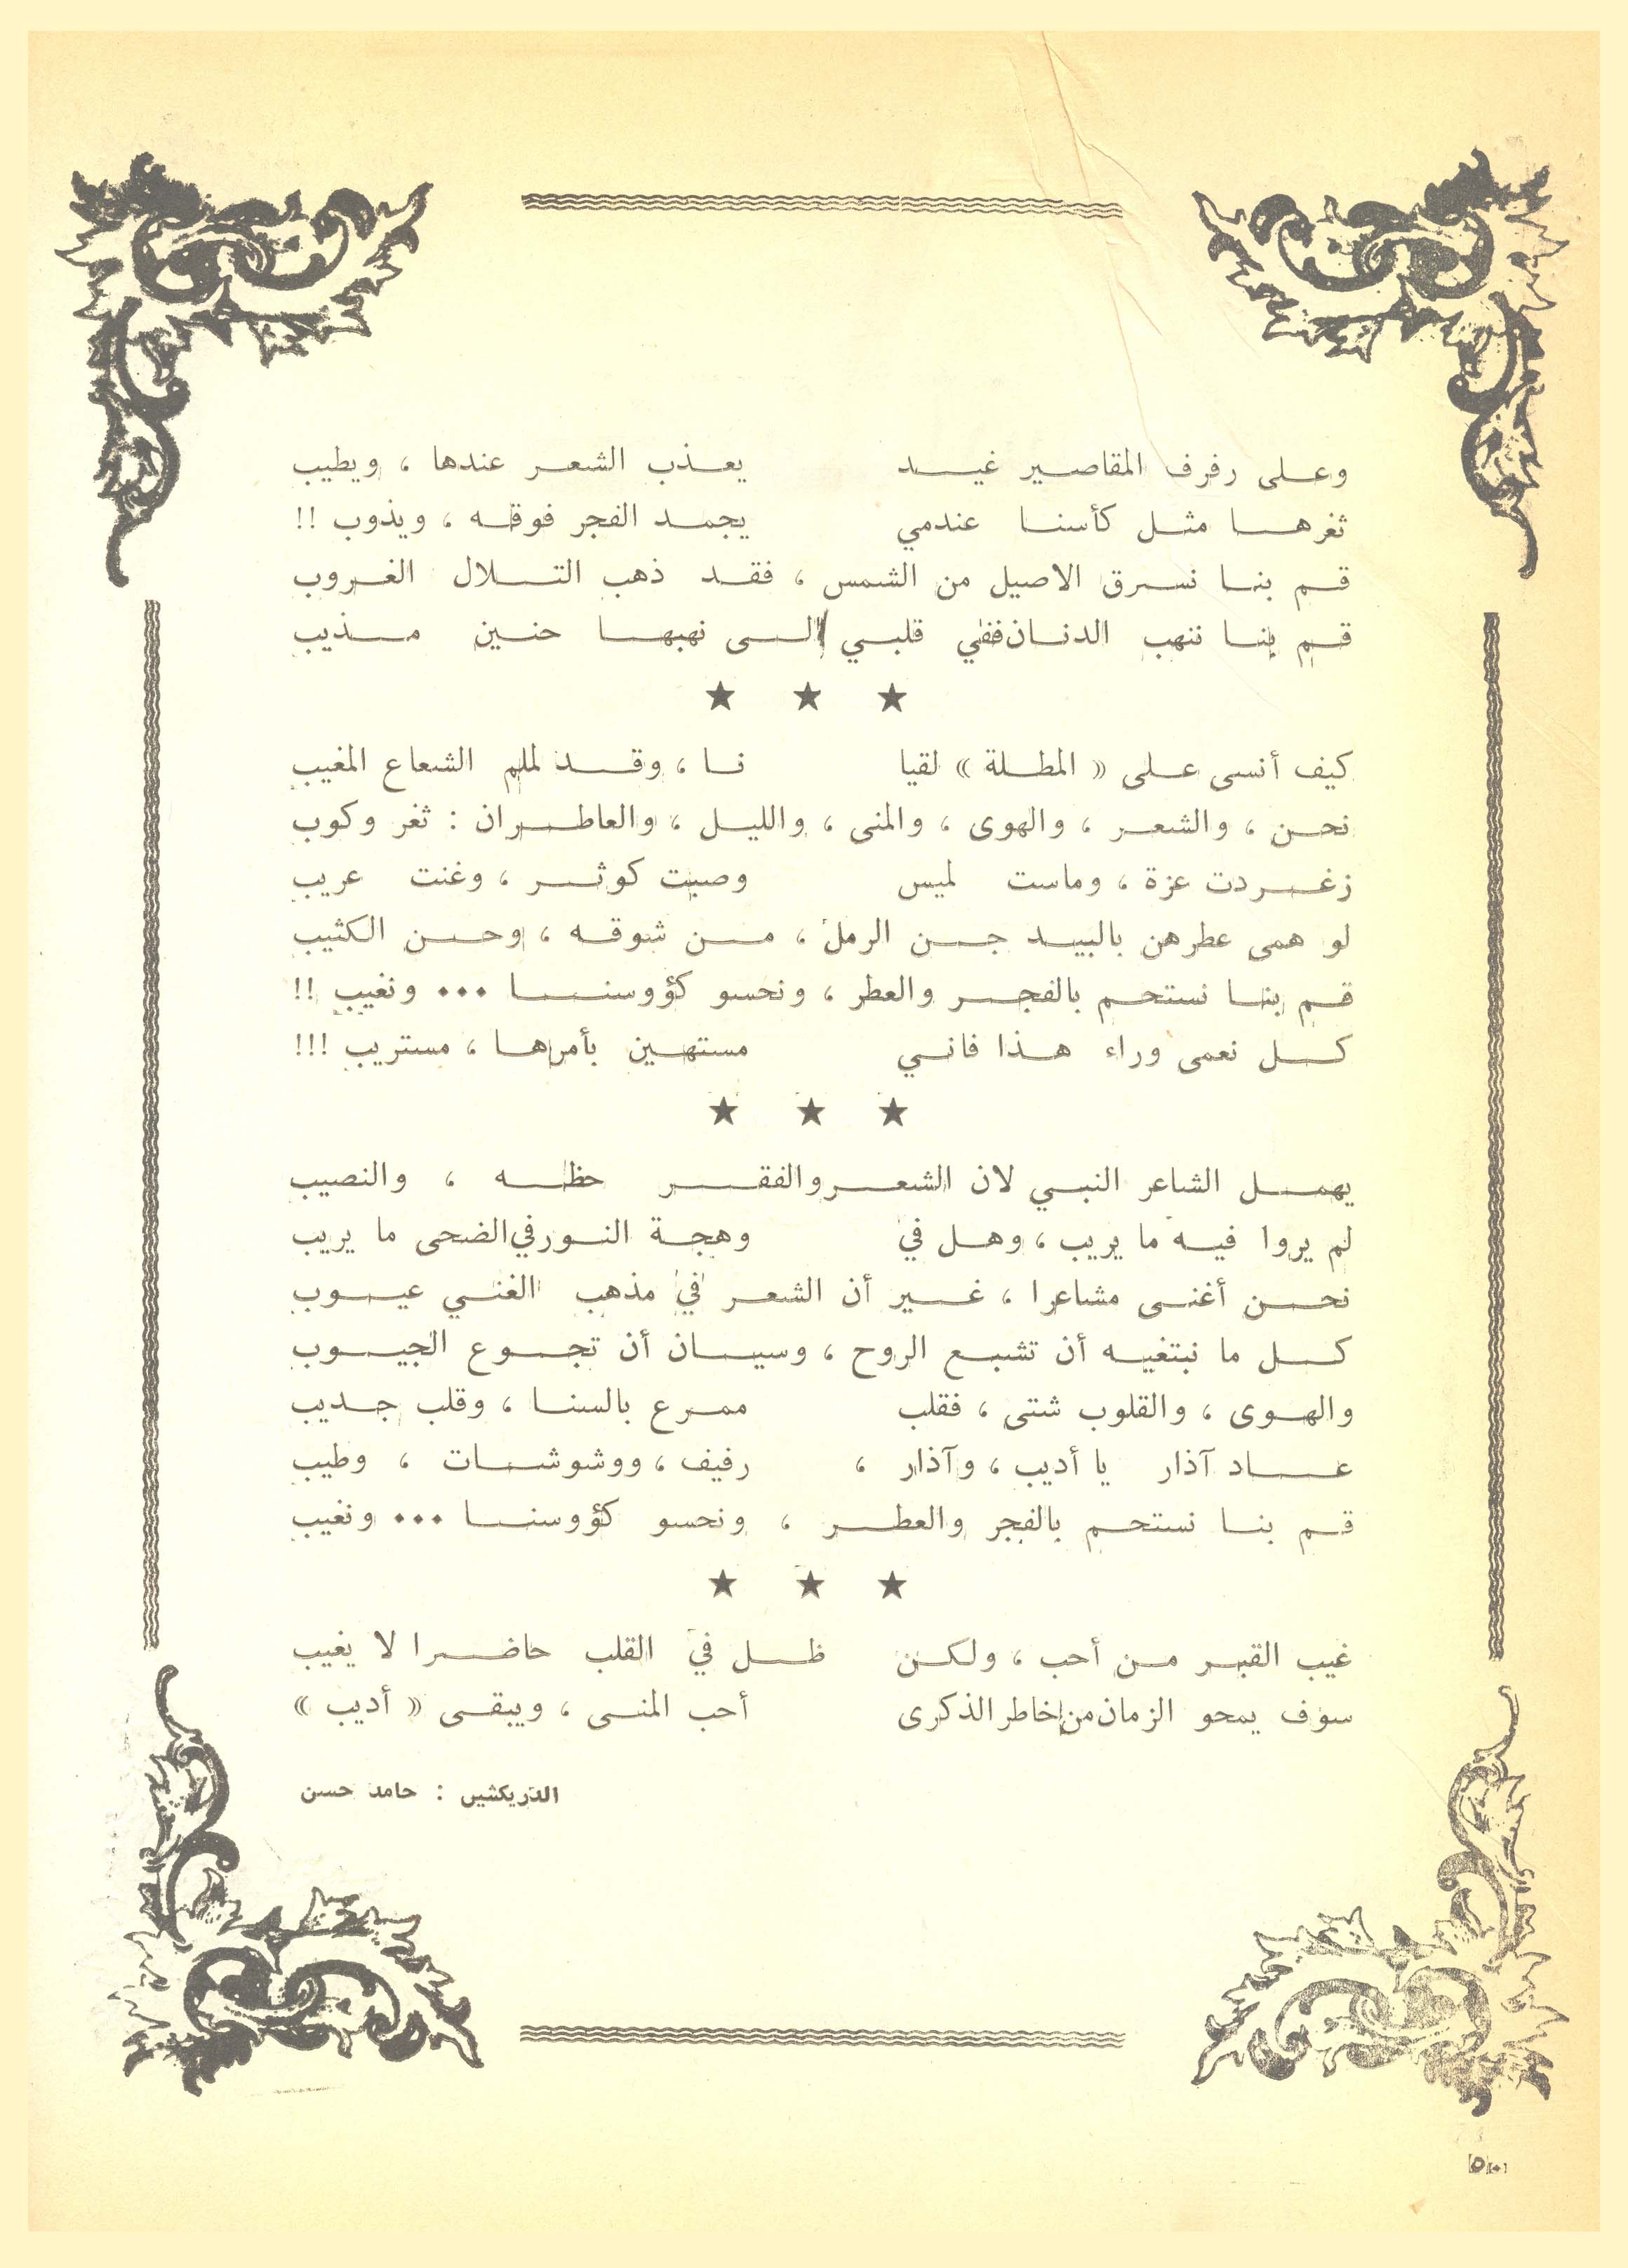 وعلى رفرف المقاصير غيد يعذب الشعر عندها ، ويطيب
ثغرها مثل كأسنا عندمي يجمد الفجر فوقه ، ويذوب !!
قم بنا نسرق الاصيل من الشمس ، فقد ذهب التلال الغروب
قم بنا ننهب الدنان ففي قلبي الى نهبها حنين مذيب
★ ★ ★
كيف أنسى على « المطلة » لقيا نا ، وقد لملم الشعاع المغيب
نحن ، والشعر ، والهوى ، والمنى ، والليل ، والعاطران : ثغر وكوب
زغردت عزة ، وماست لميس وصبت كوثر ، وغنت عريب
لو همى عطرهن بالبيد جن الرمل ، من شوقه ، وحن الكثيب
قم بنا نستحم بالفجر والعطر ، ونحسو كؤوسنا ... ونغيب !!
كل نعمى وراء هذا فاني مستهين بأمرها ، مستريب !!!
★ ★ ★
يهمل الشاعر النبي لان الشعر والفقر حظه ، والنصيب
لم يروا فيه ما يريب ، وهل في وهجة النور في الضحى ما يريب
نحن أغنى مشاعرا ، غير أن الشعر في مذهب الغني عيوب
كل ما نبتغيه أن تشبع الروح ، وسيان أن تجوع الجيوب
والهوى ، والقلوب شتى ، فقلب ممرع بالسنا ، وقلب جديب
عاد آذار يا أديب ، وآذار ، رفيف ، ووشوشات ، وطيب
قم بنا نستحم بالفجر والعطر ، ونحسو كؤوسنا ... ونغيب
★ ★ ★
غيب القبر من أحب ، ولكن ظل في القلب حاضرا لا يغيب
سوف يمحو الزمان من خاطر الذكرى أحب المنى ، ويبقى « أديب »
الدريكيش : حامد حسن
٥٠